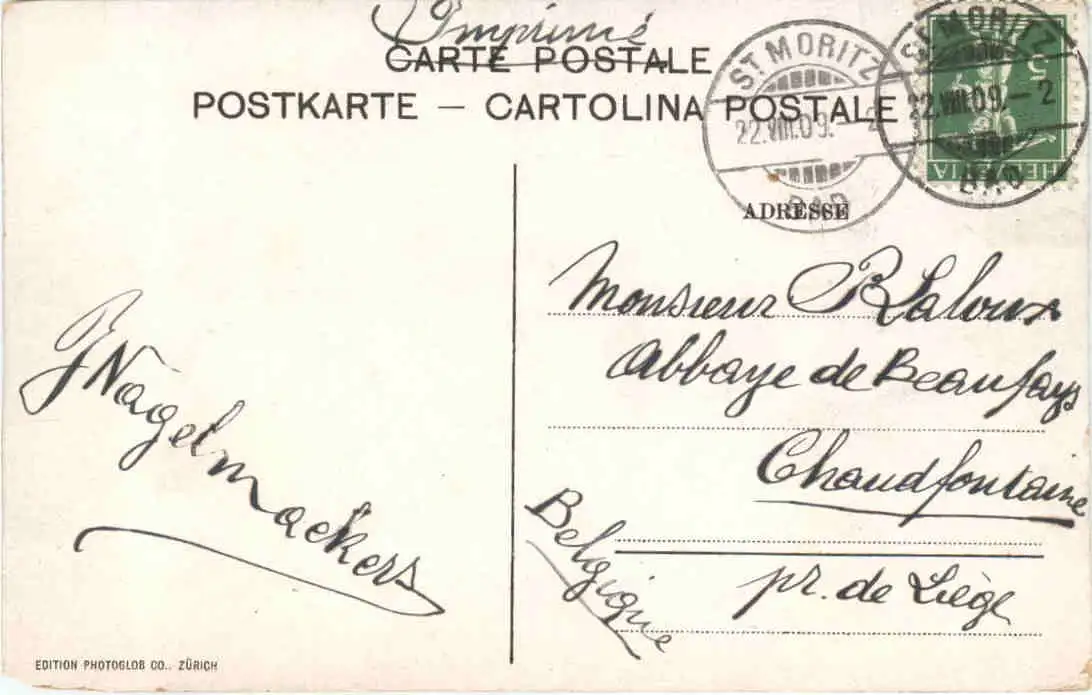 Imprimé
CARTE POSTALE
POSTKARTE — CARTOLINA POSTALE
ST. MORITZ
22.VIII.09.—2
BAD
ST. MORITZ
22.VIII.09.—2
BAD
5
HELVETIA
ADRESSE
Monsieur R Laloux
Abbaye de Beaufays
Chaudfontaine
Belgique
pr. de Liège
J Nagelmackers
EDITION PHOTOGLOB CO., ZÜRICH